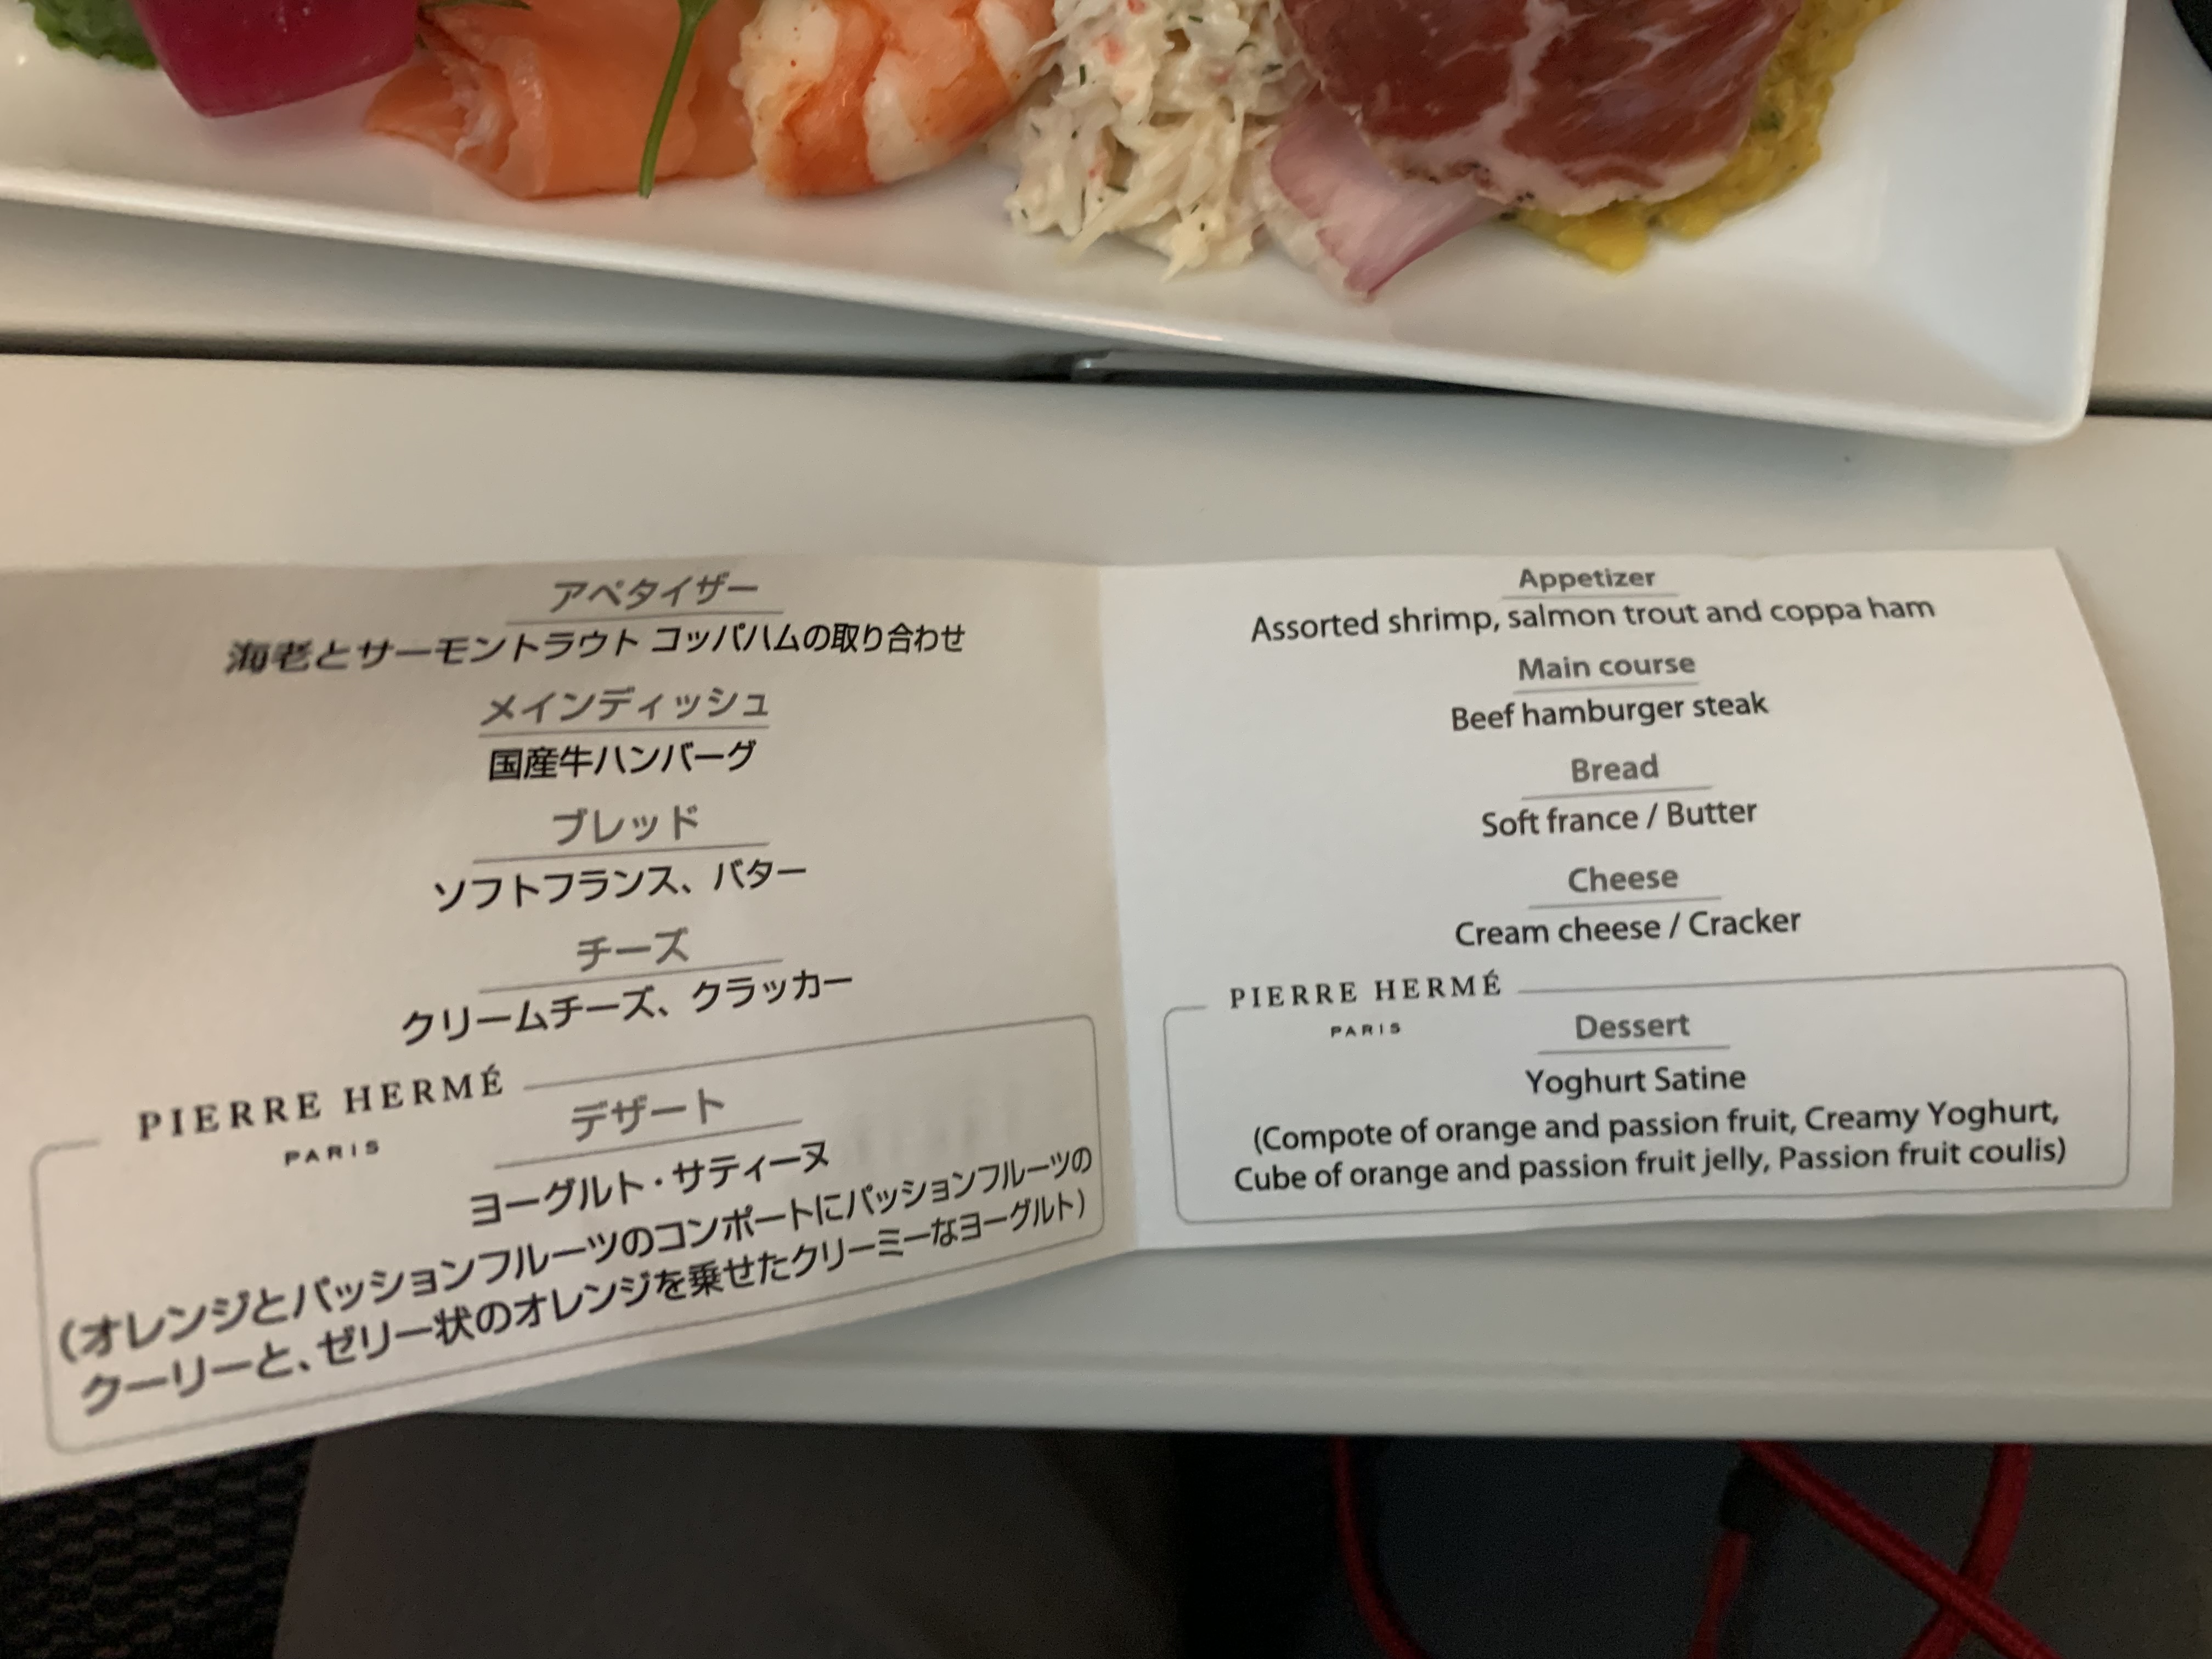 アペタイザー
海老とサーモントラウト コッパハムの取り合わせ
メインディッシュ
国産牛ハンバーグ
ブレッド
ソフトフランス、バター
チーズ
クリームチーズ、クラッカー
PIERRE HERMÉ
PARIS
デザート
ヨーグルト・サティーヌ
(オレンジとパッションフルーツのコンポートにパッションフルーツの
クーリーと、ゼリー状のオレンジを乗せたクリーミーなヨーグルト)
Appetizer
Assorted shrimp, salmon trout and coppa ham
Main course
Beef hamburger steak
Bread
Soft france / Butter
Cheese
Cream cheese / Cracker
PIERRE HERMÉ
PARIS
Dessert
Yoghurt Satine
(Compote of orange and passion fruit, Creamy Yoghurt,
Cube of orange and passion fruit jelly, Passion fruit coulis)